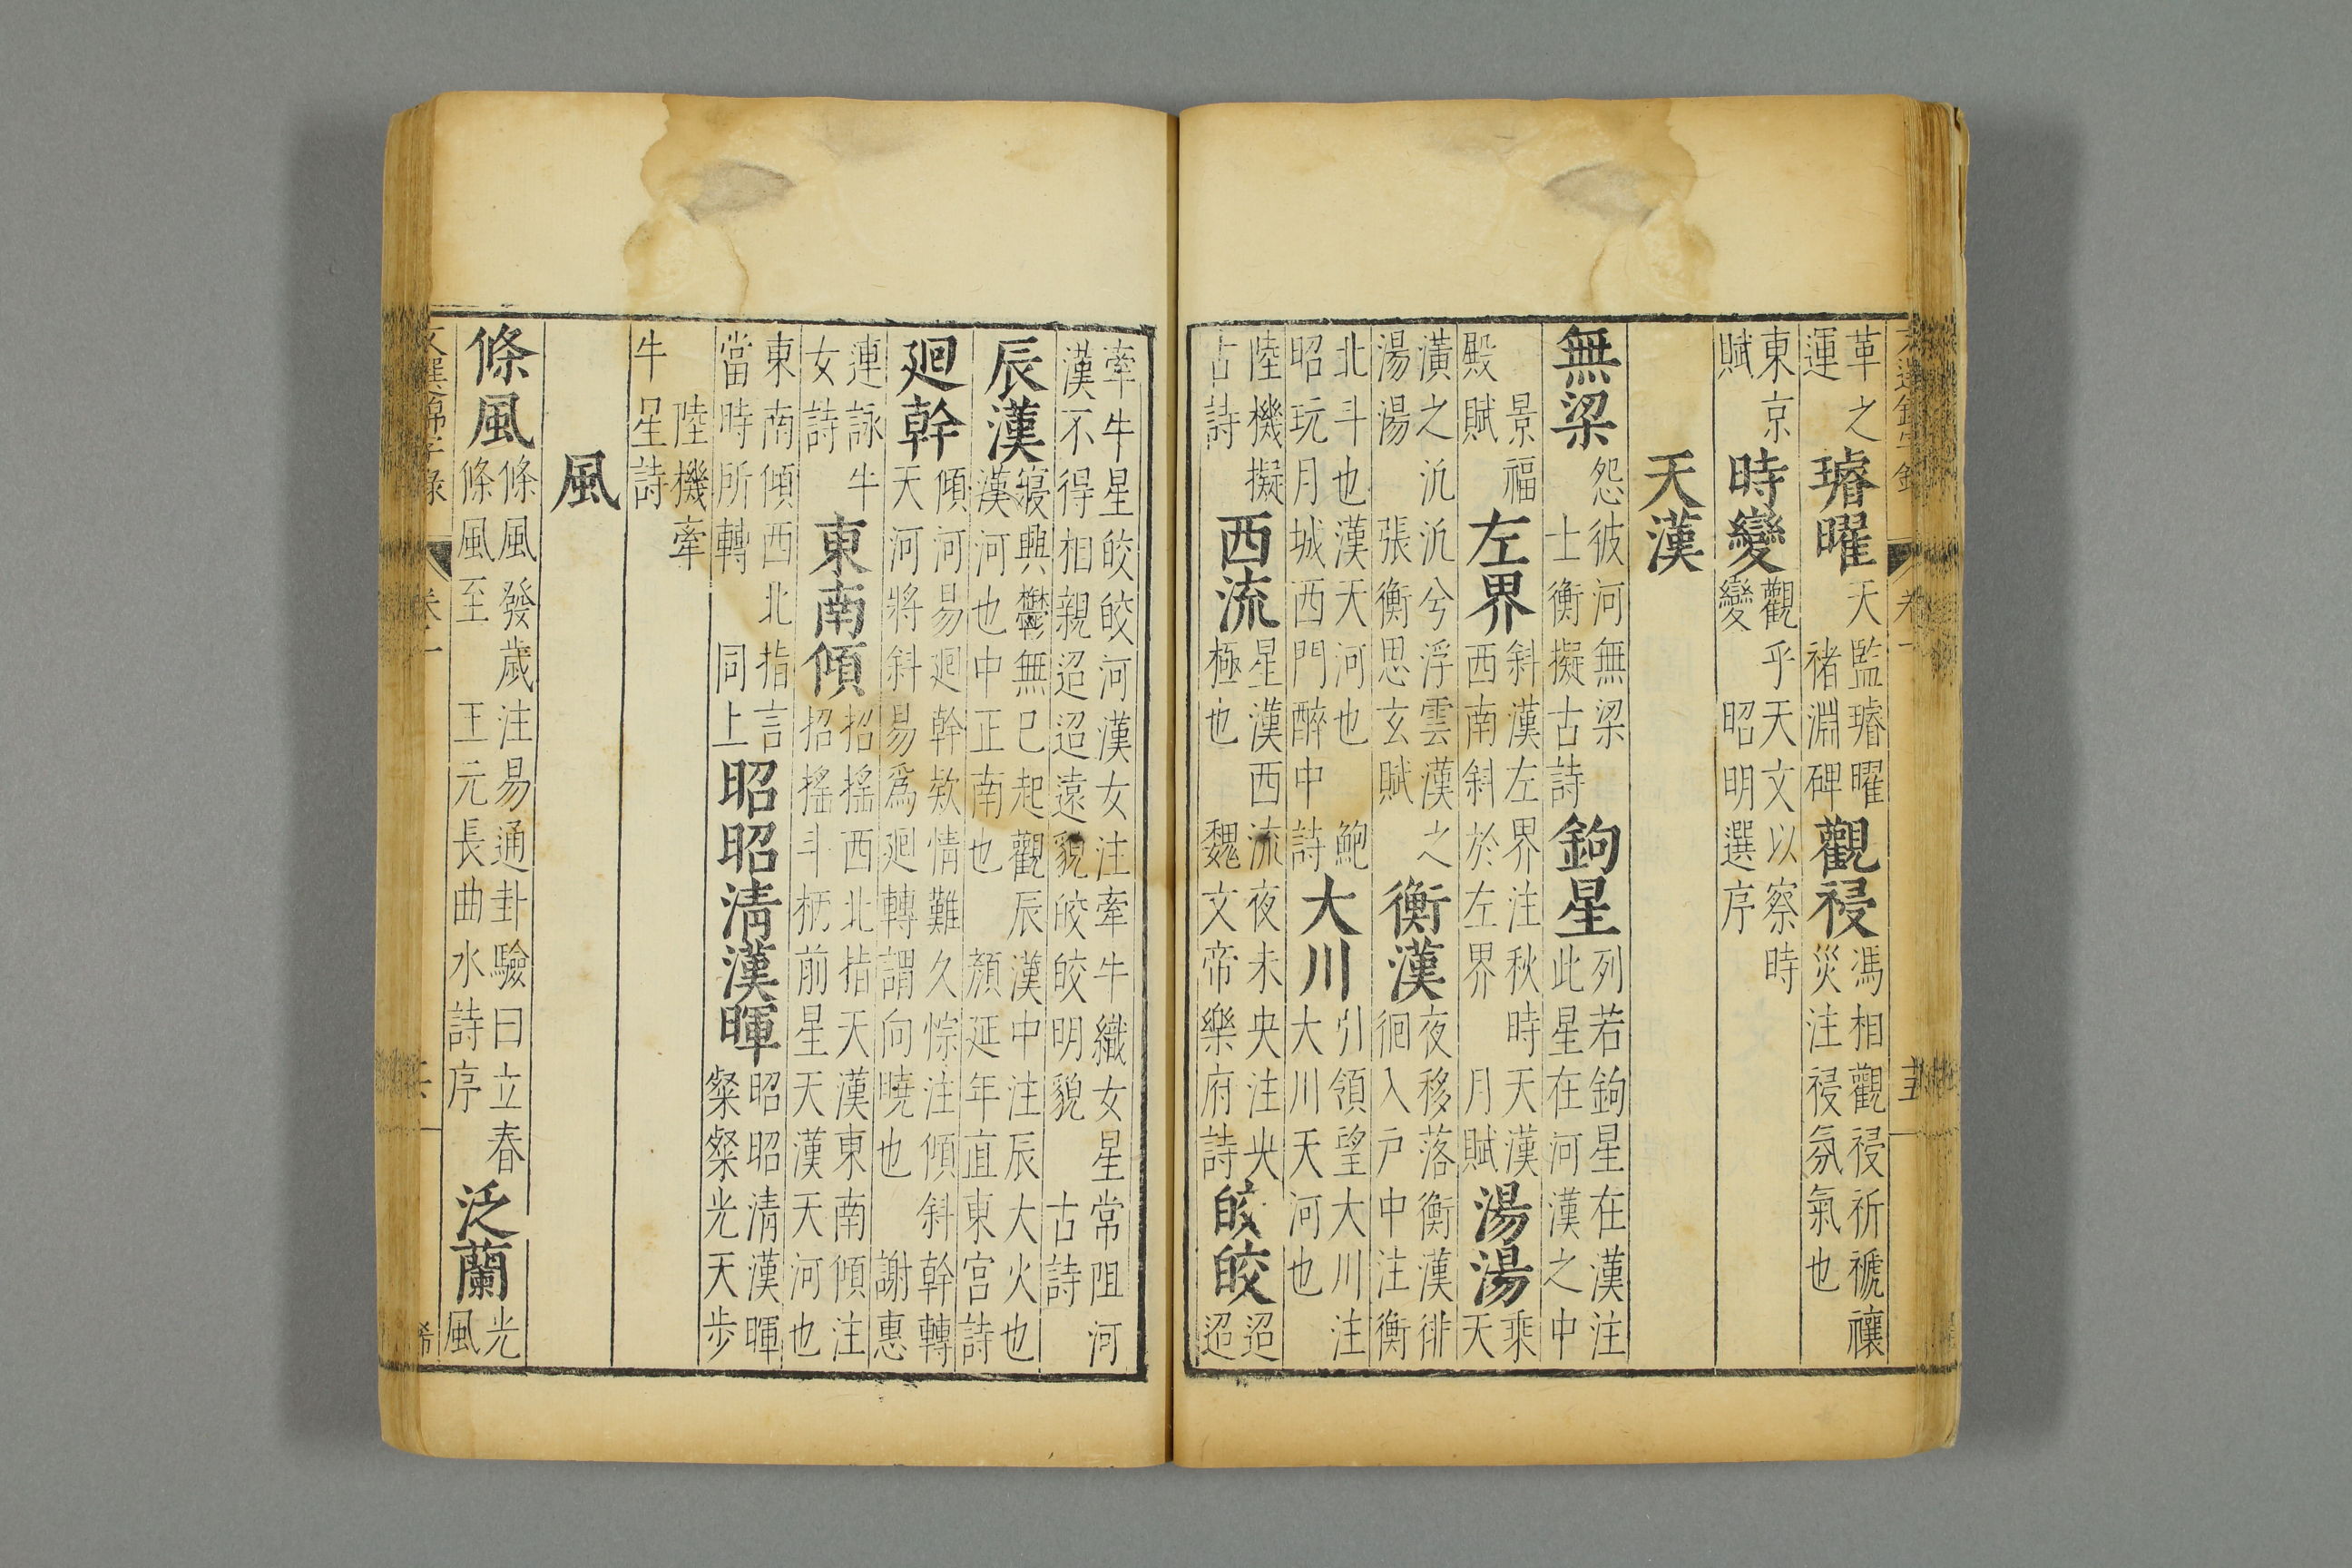 革之運璿曜天監璿曜褚淵碑觀祲馮相觀祲祈禠禳災注祲氛氣也
東京賦時變觀乎天文以察時變昭明選序
天漢
無梁怨彼河無梁士衡擬古詩鉤星列若鉤星在漢注此星在河漢之中
景福殿賦左界斜漢左界注秋時天漢西南斜於左界月賦湯湯乘天
潢之汎汎兮浮雲漢之湯湯張衡思玄賦衡漢夜移落衡漢徘徊入戶中注衡
北斗也漢天河也鮑昭玩月城西門醉中詩大川引領望大川注大川天河也
陸機擬古詩西流星漢西流夜未央注央極也魏文帝樂府詩皎皎迢迢
牽牛星皎皎河漢女注牽牛織女星常阻河漢不得相親迢迢遠貌皎皎明貌古詩
辰漢寢興鬱無已起觀辰漢中注辰大火也漢河也中正南也顏延年直東宮詩
廻幹傾河易廻幹欵情難久悰注傾斜幹轉天河將斜易爲廻轉謂向曉也謝惠
連詠牛女詩東南傾招搖西北指天漢東南傾注招搖斗柄前星天漢天河也
東南傾西北指言當時所轉同上昭昭清漢暉昭昭清漢暉粲粲光天步
陸機牽牛星詩
風
條風條風發歲注易通卦驗曰立春條風至王元長曲水詩序泛蘭光風